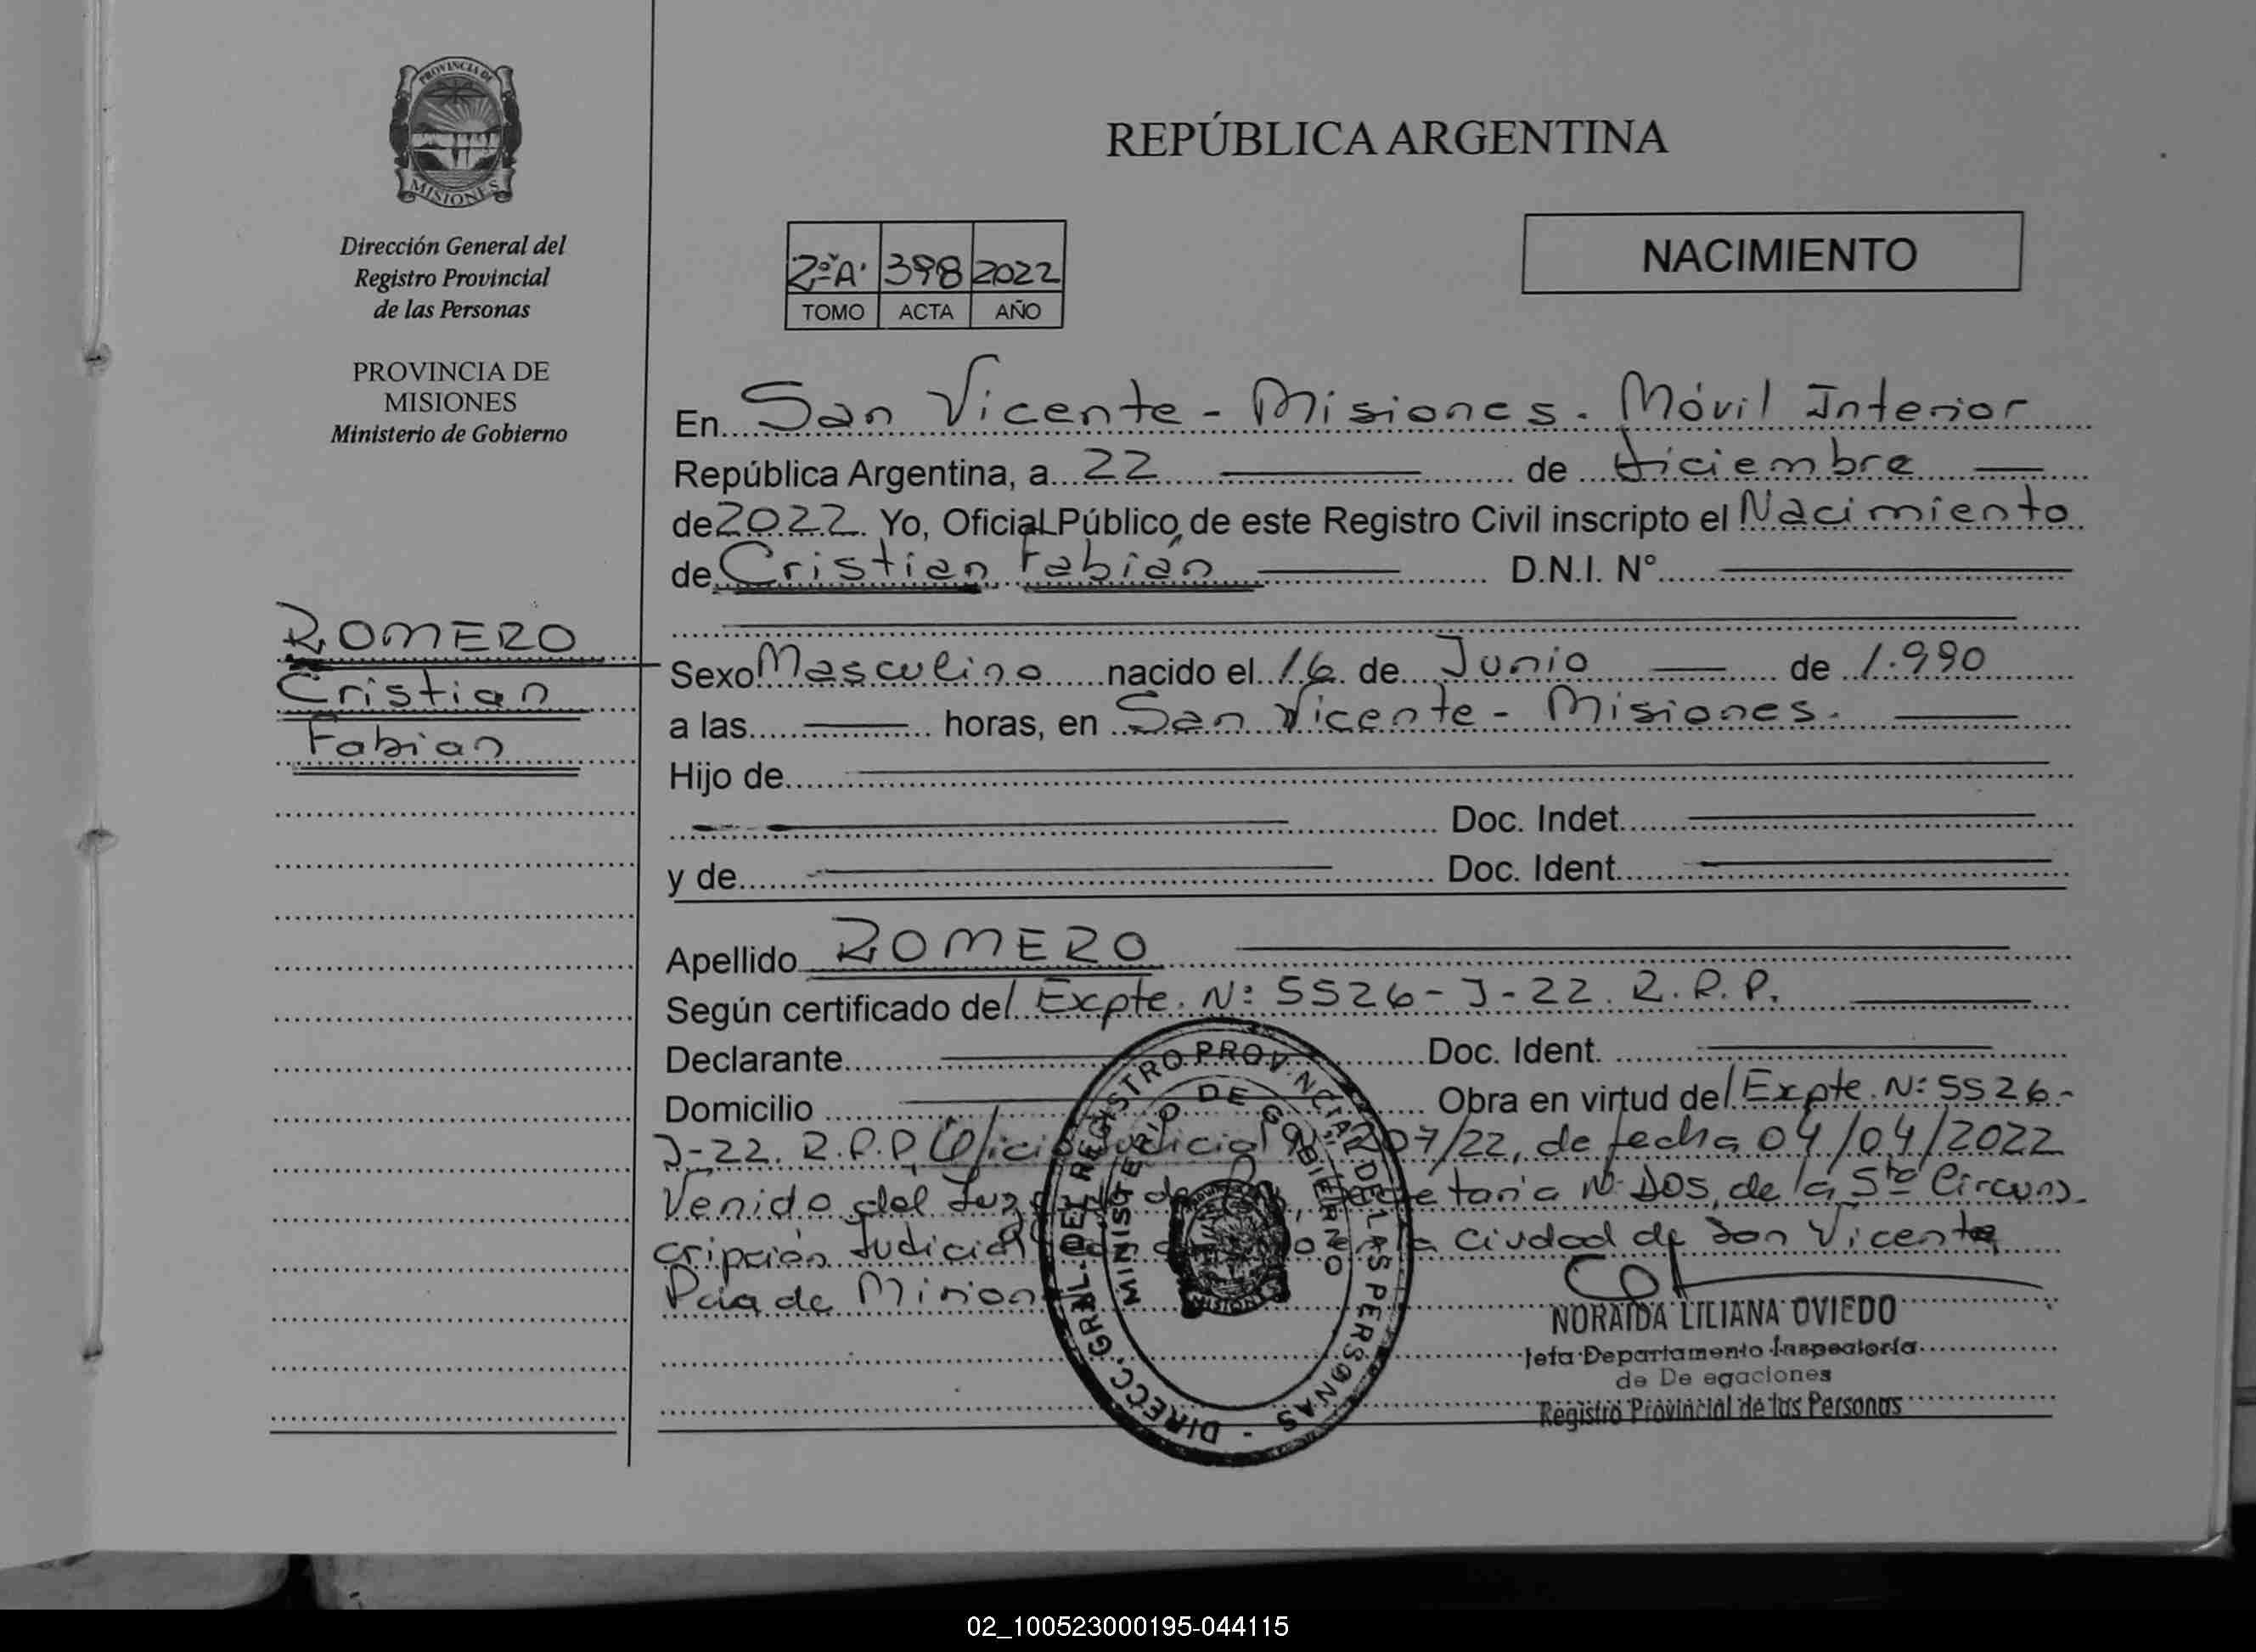 PROVINCIA DE
MISIONES
Dirección General del
Registro Provincial
de las Personas
PROVINCIA DE
MISIONES
Ministerio de Gobierno
ROMERO
Cristian
Fabian
REPÚBLICA ARGENTINA
2º A. 398 2022
TOMO ACTA AÑO
NACIMIENTO
En San Vicente - Misiones. Móvil Interior
República Argentina, a 22 de diciembre
de 2022. Yo, Oficial Público de este Registro Civil inscripto el Nacimiento
de Cristian Fabián D.N.I. N°
Sexo Masculino nacido el 16 de Junio de 1.990
a las horas, en San Vicente - Misiones.
Hijo de
Doc. Indet.
y de Doc. Ident.
Apellido ROMERO
Según certificado del Expte. Nº 5526-J-22. R.P.P.
Declarante Doc. Ident.
Domicilio Obra en virtud del Expte. Nº 5526-
J-22. R.P.P. Oficio Judicial Nº 207/22, de fecha 04/04/2022
Venido del Secretaria Nº DOS, de la 5ta Circuns-
cripción Judicial ciudad de San Vicente
Pcia de Mision
DIRECC. GRAL. DEL REGISTRO PROVINCIAL DE LAS PERSONAS -
MINISTERIO DE GOBIERNO
MISIONES
NORAIDA LILIANA OVIEDO
Jefa Departamento Inspectoría
de De egaciones
Registro Provincial de las Personas
02_100523000195-044115